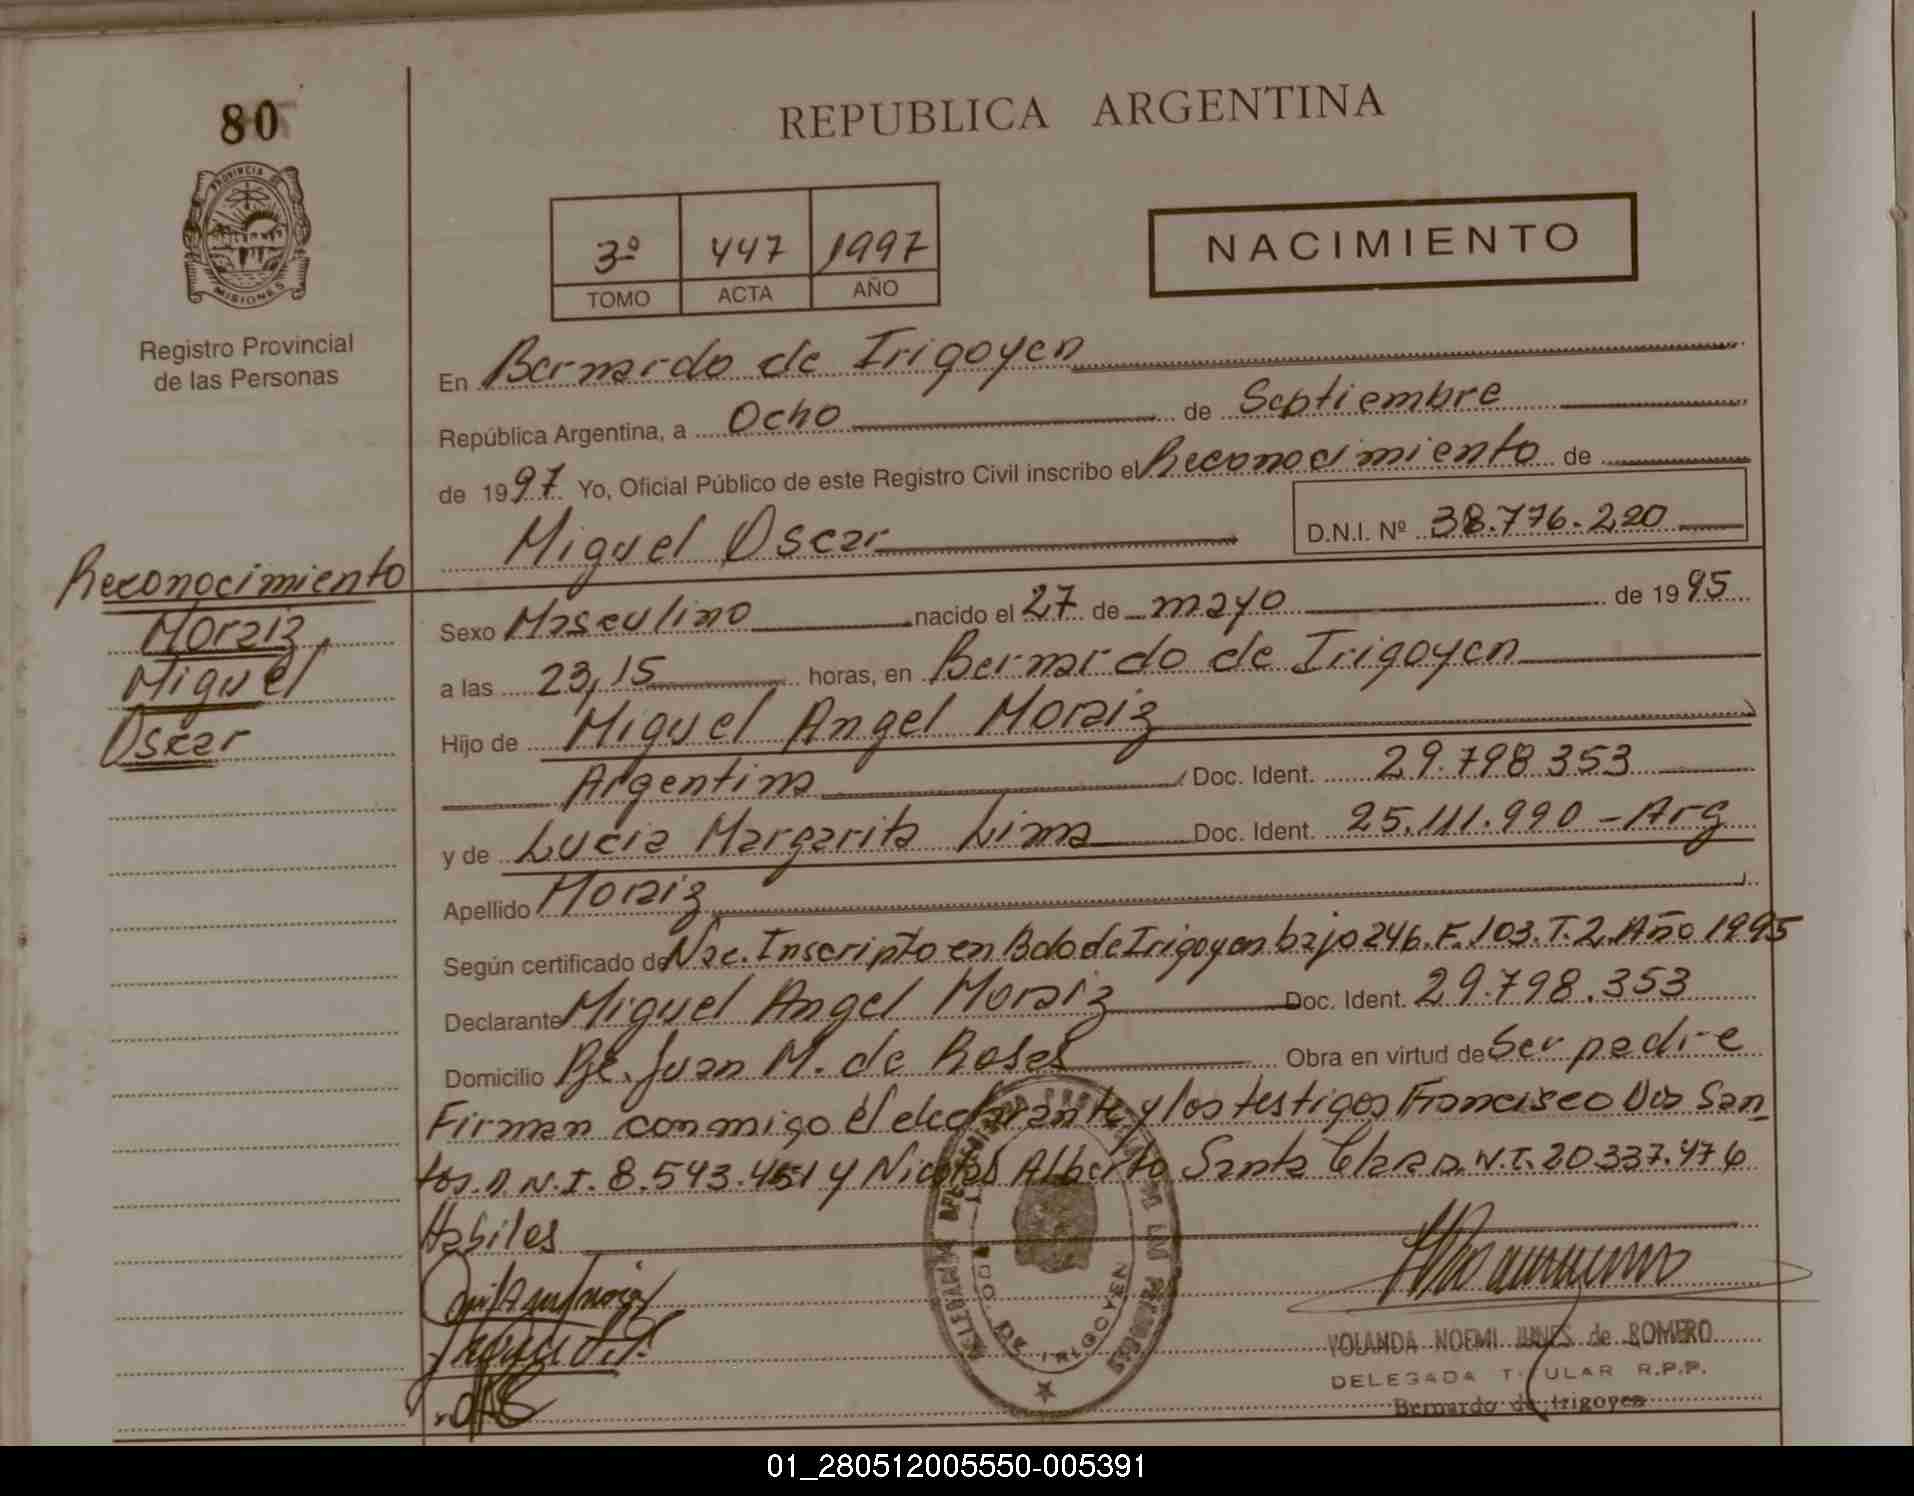 80
REPUBLICA ARGENTINA
PROVINCIA DE
MISIONES
3º 447 1997
TOMO ACTA AÑO
NACIMIENTO
Registro Provincial
de las Personas
En Bernardo de Irigoyen
República Argentina, a Ocho de Septiembre
de 1997 Yo, Oficial Público de este Registro Civil inscribo el Reconocimiento de
Miguel Oscar D.N.I. Nº 38.776.220
Reconocimiento
Moraiz,
Miguel
Oscar
Sexo Masculino nacido el 27 de mayo de 1995
a las 23,15 horas, en Bernardo de Irigoyen
Hijo de Miguel Angel Moraiz
Argentina Doc. Ident. 29.798.353
y de Lucia Margarita Lima Doc. Ident. 25.111.990 - Arg
Apellido Moraiz
Según certificado de Nac. Inscripto en Bdo de Irigoyen bajo 246. F. 103. T. 2. Año 1995
Declarante Miguel Angel Moraiz Doc. Ident. 29.798.353
Domicilio Pje. Juan M. de Rosas Obra en virtud de Ser padre
Firman conmigo el declarante y los testigos Francisco Dos San
tos. D.N.I. 8.543.451 y Nicolas Alberto Santa Clara D.N.I. 20.337.476
Habiles
BDO. DE IRIGOYEN
YOLANDA NOEMI de ROMERO
DELEGADA TITULAR R.P.P.
Bernardo de Irigoyen
01_280512005550-005391